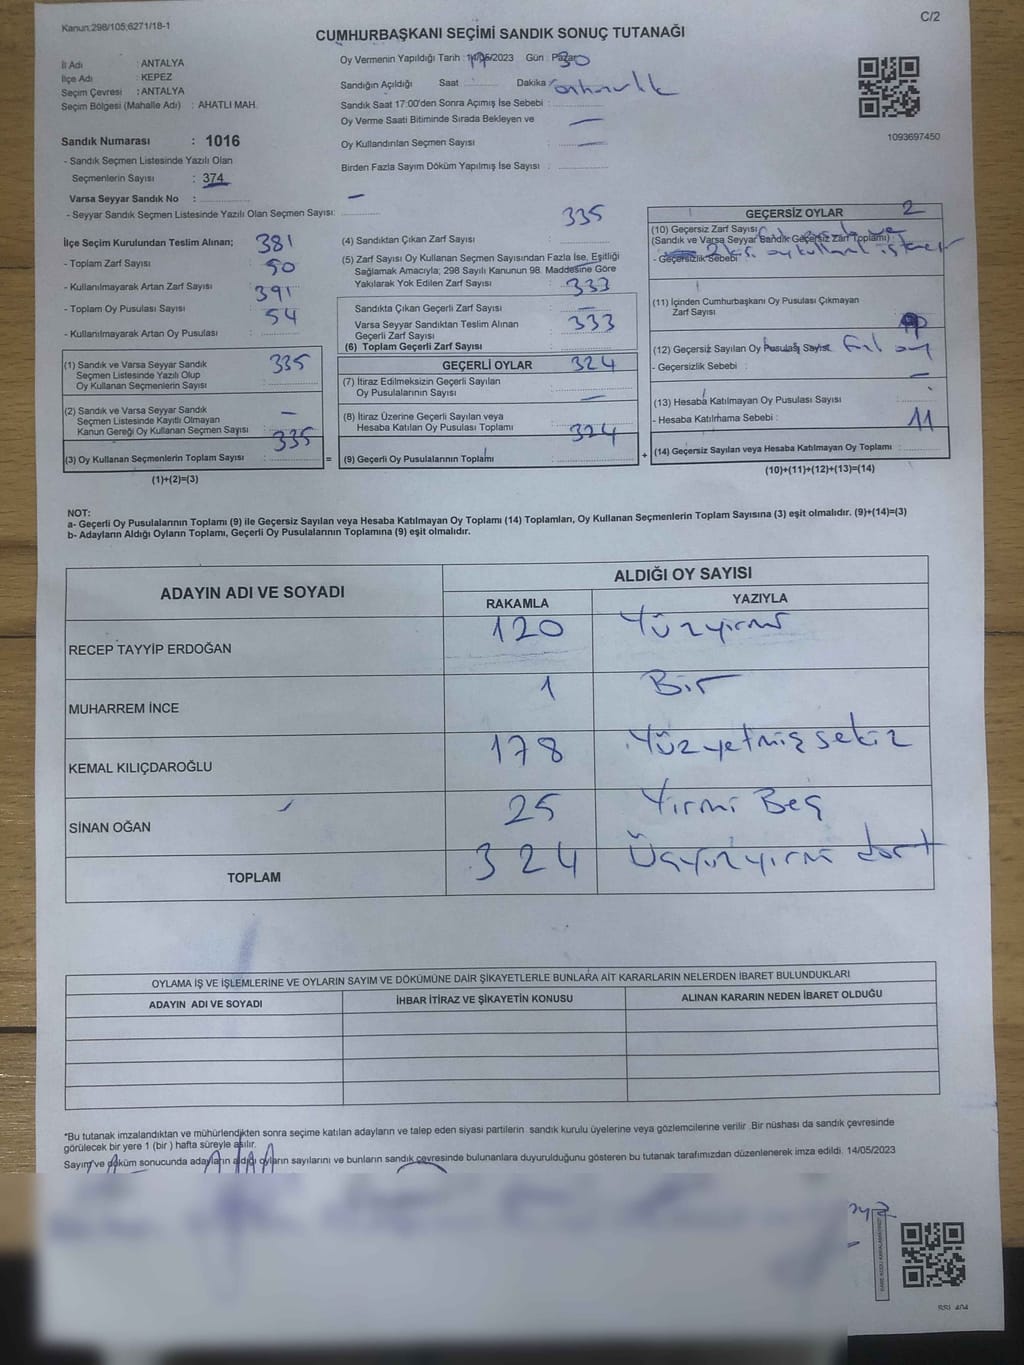 Kanun:298/105;6271/18-1
C/2
CUMHURBAŞKANI SEÇİMİ SANDIK SONUÇ TUTANAĞI
İl Adı : ANTALYA
İlçe Adı : KEPEZ
Seçim Çevresi : ANTALYA
Seçim Bölgesi (Mahalle Adı) : AHATLI MAH.
Sandık Numarası : 1016
- Sandık Seçmen Listesinde Yazılı Olan
Seçmenlerin Sayısı : 374
Varsa Seyyar Sandık No :
- Seyyar Sandık Seçmen Listesinde Yazılı Olan Seçmen Sayısı: –
Oy Vermenin Yapıldığı Tarih : 14/05/2023 Gün : Pazar
Sandığın Açıldığı Saat : 17 Dakika : 30
Sandık Saat 17:00'den Sonra Açımış İse Sebebi :
Oy Verme Saati Bitiminde Sırada Bekleyen ve
Oy Kullandırılan Seçmen Sayısı : –
Birden Fazla Sayım Döküm Yapılmış İse Sayısı : –
1093697450
İlçe Seçim Kurulundan Teslim Alınan;
- Toplam Zarf Sayısı : 381
- Kullanılmayarak Artan Zarf Sayısı : 50
- Toplam Oy Pusulası Sayısı : 391
- Kullanılmayarak Artan Oy Pusulası : 54
(1) Sandık ve Varsa Seyyar Sandık
Seçmen Listesinde Yazılı Olup
Oy Kullanan Seçmenlerin Sayısı : 335
(2) Sandık ve Varsa Seyyar Sandık
Seçmen Listesinde Kayıtlı Olmayan
Kanun Gereği Oy Kullanan Seçmen Sayısı : –
(3) Oy Kullanan Seçmenlerin Toplam Sayısı : 335
(1)+(2)=(3)
(4) Sandıktan Çıkan Zarf Sayısı : 335
(5) Zarf Sayısı Oy Kullanan Seçmen Sayısından Fazla İse, Eşitliği
Sağlamak Amacıyla; 298 Sayılı Kanunun 98. Maddesine Göre
Yakılarak Yok Edilen Zarf Sayısı : –
Sandıkta Çıkan Geçerli Zarf Sayısı : 333
Varsa Seyyar Sandıktan Teslim Alınan
Geçerli Zarf Sayısı : –
(6) Toplam Geçerli Zarf Sayısı : 333
GEÇERLİ OYLAR
(7) İtiraz Edilmeksizin Geçerli Sayılan
Oy Pusulalarının Sayısı : 324
(8) İtiraz Üzerine Geçerli Sayılan veya
Hesaba Katılan Oy Pusulası Toplamı : –
= (9) Geçerli Oy Pusulalarının Toplamı : 324
GEÇERSİZ OYLAR
(10) Geçersiz Zarf Sayısı : 2
(Sandık ve Varsa Seyyar Sandık Geçersiz Zarf Toplamı)
- Geçersizlik Sebebi :
(11) İçinden Cumhurbaşkanı Oy Pusulası Çıkmayan
Zarf Sayısı :
(12) Geçersiz Sayılan Oy Pusulası Sayısı
- Geçersizlik Sebebi :
(13) Hesaba Katılmayan Oy Pusulası Sayısı : –
- Hesaba Katılmama Sebebi :
+ (14) Geçersiz Sayılan veya Hesaba Katılmayan Oy Toplamı : 11
(10)+(11)+(12)+(13)=(14)
NOT:
a- Geçerli Oy Pusulalarının Toplamı (9) ile Geçersiz Sayılan veya Hesaba Katılmayan Oy Toplamı (14) Toplamları, Oy Kullanan Seçmenlerin Toplam Sayısına (3) eşit olmalıdır. (9)+(14)=(3)
b- Adayların Aldığı Oyların Toplamı, Geçerli Oy Pusulalarının Toplamına (9) eşit olmalıdır.
ADAYIN ADI VE SOYADI ALDIĞI OY SAYISI
RAKAMLA YAZIYLA
RECEP TAYYİP ERDOĞAN 120 Yüzyirmi
MUHARREM İNCE 1 Bir
KEMAL KILIÇDAROĞLU 178 Yüzyetmiş sekiz
SİNAN OĞAN 25 Yirmi Beş
TOPLAM 324 Üçyüzyirmi dört
OYLAMA İŞ VE İŞLEMLERİNE VE OYLARIN SAYIM VE DÖKÜMÜNE DAİR ŞİKAYETLERLE BUNLARA AİT KARARLARIN NELERDEN İBARET BULUNDUKLARI
ADAYIN ADI VE SOYADI İHBAR İTİRAZ VE ŞİKAYETİN KONUSU ALINAN KARARIN NEDEN İBARET OLDUĞU
*Bu tutanak imzalandıktan ve mühürlendikten sonra seçime katılan adayların ve talep eden siyasi partilerin sandık kurulu üyelerine veya gözlemcilerine verilir .Bir nüshası da sandık çevresinde
görülecek bir yere 1 (bir ) hafta süreyle asılır.
Sayım ve döküm sonucunda adayların aldığı oyların sayılarını ve bunların sandık çevresinde bulunanlara duyurulduğunu gösteren bu tutanak tarafımızdan düzenlenerek imza edildi. 14/05/2023